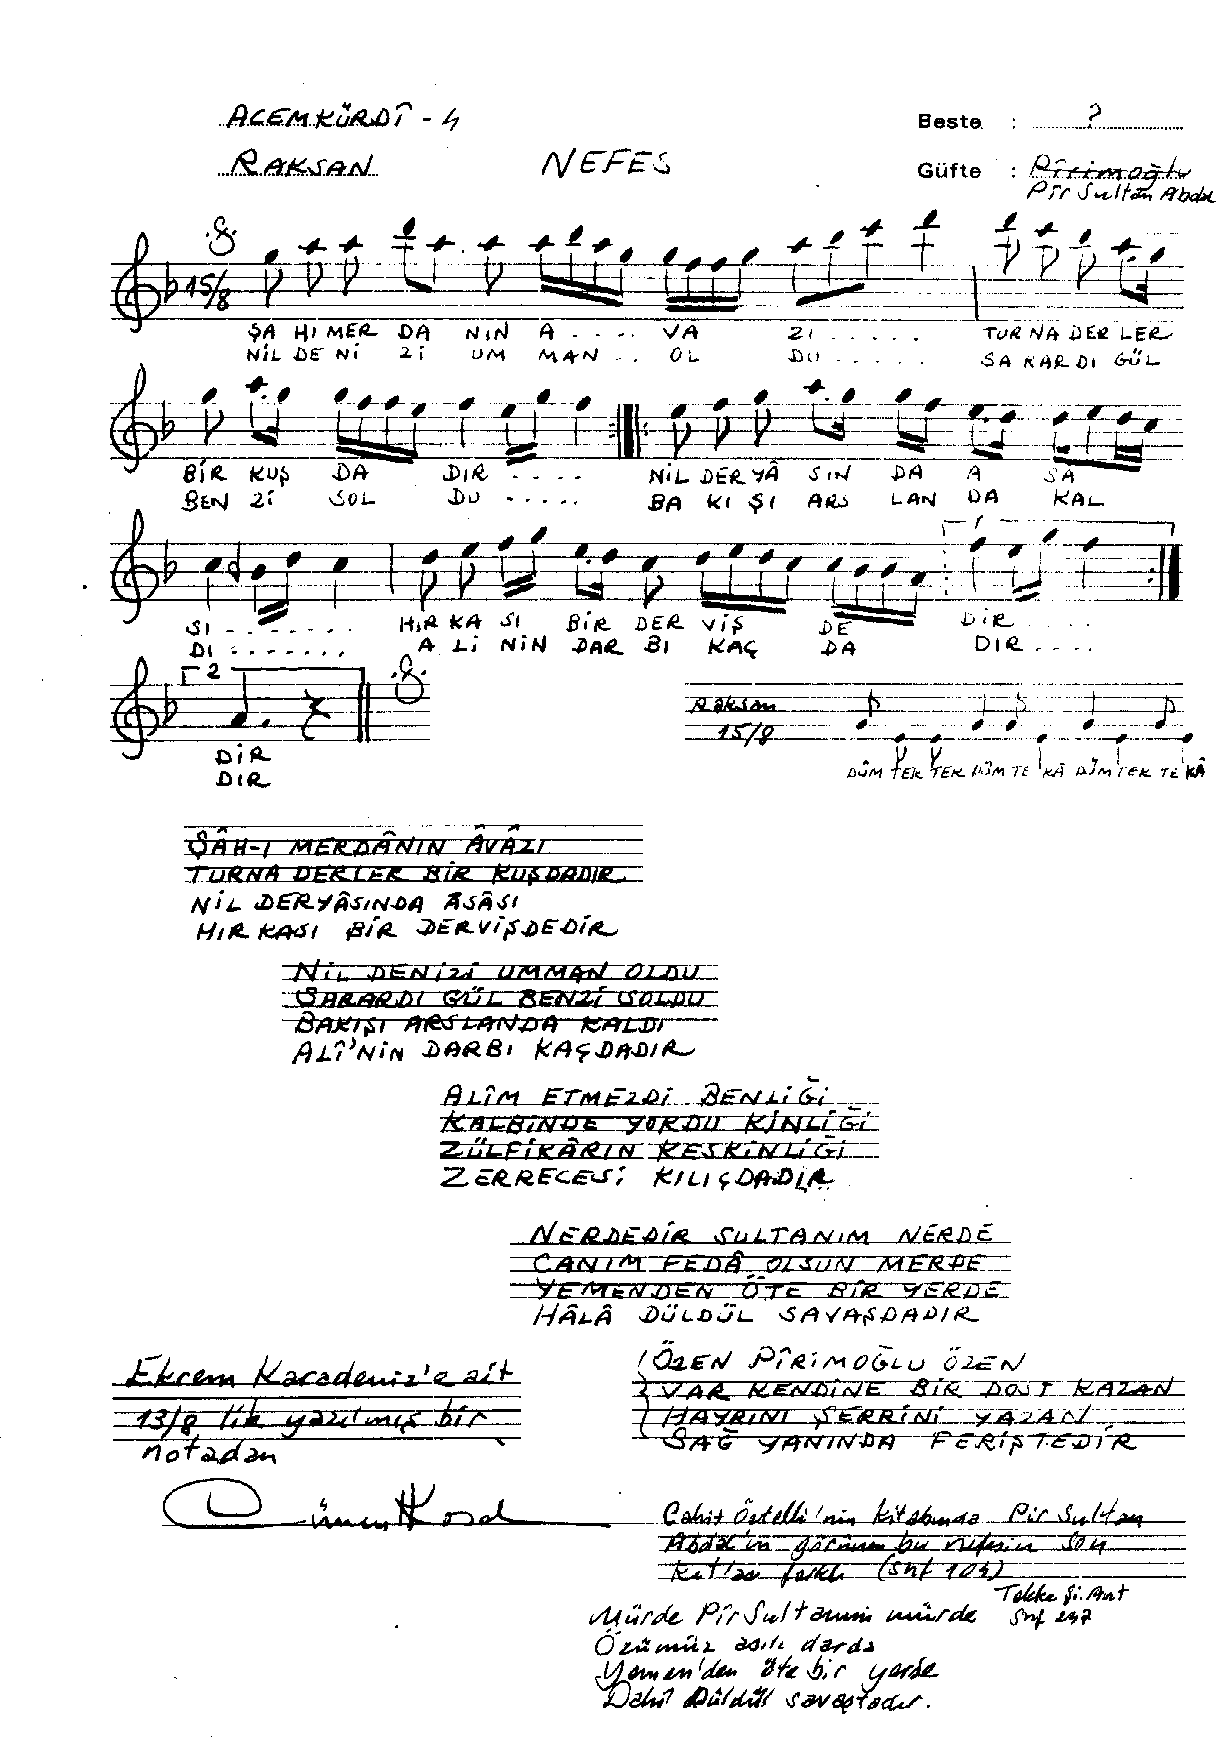 ACEMKÜRDÎ - 4
Beste : ?
RAKSAN
NEFES
Güfte : Pîrimoğlu
Pîr Sultân Abdal
15/8
ŞA HI MER DA NIN A . . . . VA ZI . . . . . TUR NA DER LER
NİL DE Nİ Zİ UM MAN . . OL DU . . . . . SA RAR DI GÜL
BİR KUŞ DA DIR . . . . NİL DER YÂ SIN DA A SA
BEN Zİ SOL DU . . . . . BA KI ŞI ARS LAN DA KAL
1
SI . . . . . . . . HIR KA SI BİR DER VİŞ DE DİR . . . .
DI . . . . . . . A Lİ NİN DAR BI KAÇ DA DIR . . . .
2
Raksan
15/8
DİR
DIR
DÜM TEK TEK DÜM TE KÂ DÜM TEK TE KÂ
ŞÂH-I MERDÂNIN ÂVÂZI
TURNA DERLER BİR KUŞDADIR
NİL DERYÂSINDA ASÂSI
HIRKASI BİR DERVİŞDEDİR
NİL DENİZİ UMMAN OLDU
SARARDI GÜL BENZİ SOLDU
BAKIŞI ARSLANDA KALDI
ALÎ'NİN DARBI KAÇDADIR
ALÎM ETMEZDİ BENLİĞİ
KALBİNDE YORDU KİNLİĞİ
ZÜLFİKÂRIN KESKİNLİĞİ
ZERRECESİ KILIÇDADIR
NERDEDİR SULTANIM NERDE
CANIM FEDÂ OLSUN MERDE
YEMENDEN ÖTE BİR YERDE
HÂLÂ DÜLDÜL SAVAŞDADIR
ÖZEN PÎRİMOĞLU ÖZEN
VAR KENDİNE BİR DOST KAZAN
HAYRINI ŞERRİNİ YAZAN
SAĞ YANINDA FERİŞTEDİR
Ekrem Karadeniz'e ait
13/8 lik yazılmış bir
notadan
Cahit Öztelli'nin kitabında Pir Sultan
Abdal'ın görünen bu nefesin son
kıt'ası farklı (Shf 104)
Tekke Şi. Ant
Shf
Mürde Pîr Sultanım mürde
Özümüz asılı darda
Yemen'den öte bir yerde
Dahî Düldül savaştadır.